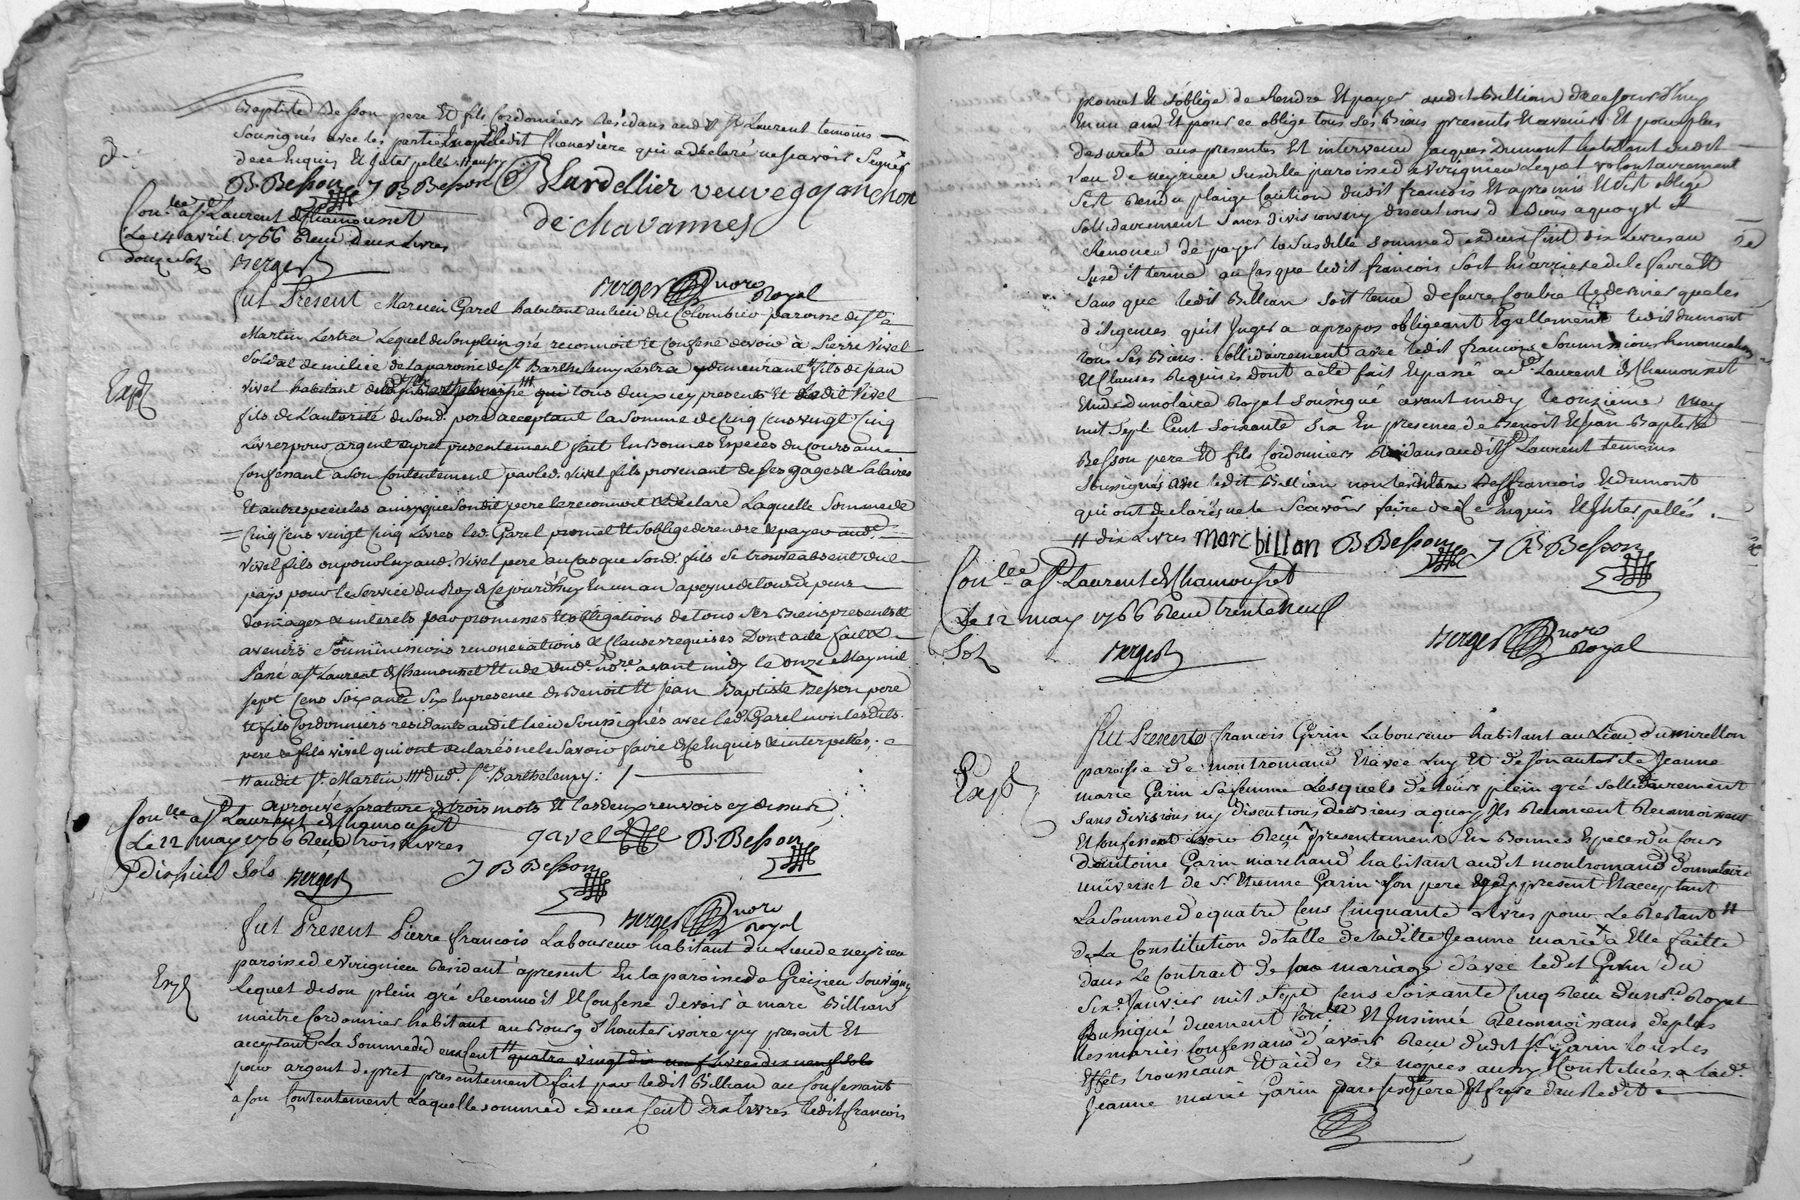 Baptiste Besson pere Et fils Cordonniers Residans audit St Laurent temoins
Soussignés avec les parties ledit Chenevière qui a declaré ne scavoir Signer
de ce Enquis Et Interpellé
B. Besson J B Besson Blardellier veuve gojanchon
de chavannes
Con.lee a St Laurent de Chamousset
Le 14 avril 1766 Receu deux Livres
douze Sols Berger
Berger nore Royal
fut Present Garel habitant au lieu du Colombier paroisse de St
Martin Lestra Lequel de Son plein gré reconnoit Et Confesse devoir à Pierre Vivel
Soldat de milice de la paroisse de St Barthelemy Lestra y demeurant fils de jean
Expd
Vivel habitant qui tous deux icy presents Et Ledit Vivel
fils de L'autorité de Sond. pere acceptant la Somme de Cinq Cens vingt Cinq
Livres pour argent de pret presentement fait En Bonnes Especes du Cours
Confessant a Son Contentement par led. Vivel fils provenant de Ses gages & Salaires
Et autres pecules ainsy que Sondit pere le reconnoit & declare Laquelle Somme de
Cinq Cens vingt Cinq Livres led. Garel promet Et Soblige de rendre & payer aud.
Vivel fils ou pour luy aud. Vivel pere au Cas que Sond. fils Se trouve absent du
pays pour le Service du Roy de Ce jourdhuy En un an a peyne de tous depens
domages & interets par promesses & obligations de tous Ses Biens presents &
avenir Soummissions renonciations & Clauses requises Dont acte fait &
Passé a St Laurent de Chamousset Etude dud. nore. avant midy le onze May mil
Sept Cens Soixante Six En presence de Benoit Et jean Baptiste Besson pere
Et fils Cordonniers residants audit lieu Soussignés avec led Garel non lesdits
pere & fils vivel qui ont declarés ne le Savoir faire de ce Enquis & interpellés
# audit St Martin ## dud. St Barthelemy
aprouvé rature de trois mots Et les deux renvois cy dessus
Con.lee a St Laurent de Chamousset
Le 12 may 1766 Receu trois Livres
dishuit Sols Berger
Javel B. Besson
J B Besson
Berger nore Royal
fut Present Pierre francois Laboureur habitant du Lieu de neyrieu
paroisse de Virignieu Residant apresent En la paroisse de Grezieu
Expd
Lequel de Son plein gré Reconnoit Et Confesse devoir à marc Billian
maitre Cordonnier habitant au Bourg d'hauterivoire icy present Et
acceptant La Somme de deux Cent # quatre vingt dix neuf Livres dix neuf Sols
pour argent de pret presentement fait par ledit Billian au Confessant
a Son Contentement Laquelle Somme de deux Cent dix Livres ledit francois
promet Et S'oblige de Rendre Et payer audit Billian de ce Jourd'huy
En un and Et pour ce oblige tous Ses Biens presents Et avenir Et pour plus
de sureté aux presentes Est intervenu Jacques Dumont habitant audit
Lieu de neyrieu Susditte paroisse de Virignieu Lequel volontairement
S'est Rendu pleige Caution dudit francois Et a promis Et S'est obligé
Sollidairement Sans divisions ny discutions de Biens a quoy il a
Renoncé de payer la Susditte Somme de deux Cent dix Livres au
Susdit terme au Cas que ledit francois Soit En arriere de le faire Et
Sans que ledit Billian Soit tenu de faire Contre Ce dernier que les
diligences qu'il Jugera apropos obligeant Egallement ledit dumont
tous Ses Biens Sollidairement avec ledit francois Soummissions Renonciations
Et Clauses Requises dont acte fait Et passé a St Laurent de Chamousset
Etude du notaire Royal Soussigné avant midy le onzieme may
mil Sept Cent Soixante Six En presence de Benoit Et Jean Baptiste
Besson pere Et fils Cordonniers Residans audit St Laurent temoins
Soussignés avec ledit Billian non lesdits francois Et dumont
qui ont declarés ne le Scavoir faire de ce Enquis Et Interpellés
# dix Livres marc billan B. Besson J B Besson
Con.lee a St Laurent de Chamousset
Le 12 may 1766 Receu trente neuf
Sols Berger
Berger nore Royal
Fut Present francois Girin Laboureur habitant au Lieu du mirellon
paroisse de montromand Et avec Luy Et de Son autorité Jeanne
Expd
marie Garin Sa femme Lesquels de leurs plein gré Sollidairement
Sans divisions ny discutions de Biens a quoy Ils Renoncent Reconnoissent
Et Confessent avoir Receu presentement En Bonnes Especes du Cours
d'antoine Garin marchand habitant audit montromand Donnataire
universel de Sr Etienne Garin Son pere icy present Et acceptant
La Somme de quatre Cens Cinquante Livres pour Le Restant #
de La Constitution dotalle de laditte Jeanne marie a Elle faitte
dans Le Contrait de Son mariage d'avec ledit Girin du
Six Janvier mil Sept Cens Soixante Cinq Receu du nore Royal
Soussigné duement Con.lée Et Insinué Reconnoissans de plus
les mariés Confessans d'avoir Receu dudit Sr Garin tous les
Effets trousseaux Et aides de nopces aussy Constitués a lad.
Jeanne marie Garin par Sesdits pere Et frere dans ledit